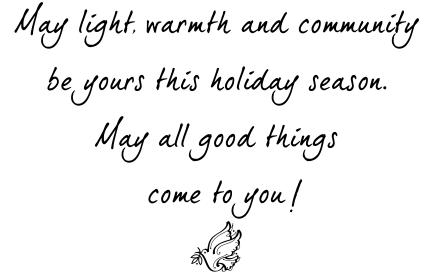 May light, warmth and community
be yours this holiday season.
May all good things
come to you!